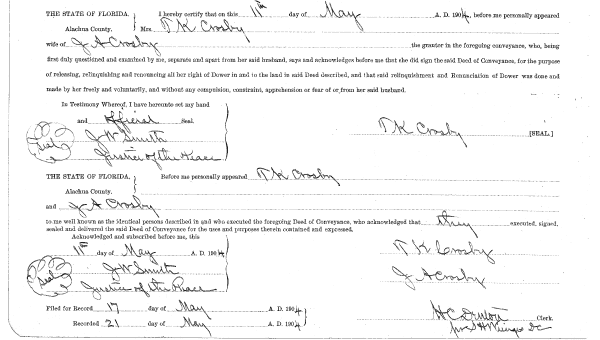 THE STATE OF FLORIDA. I hereby certify that on this 11th day of May A. D. 1904, before me personally appeared
Alachua County. Mrs T K Crosby
wife of J A Crosby the grantor in the foregoing conveyance, who, being
first duly questioned and examined by me, separate and apart from her said husband, says and acknowledges before me that she did sign the said Deed of Conveyance, for the purpose
of releasing, relinquishing and renouncing all her right of Dower in and to the land in said Deed described, and that said relinquishment and Renunciation of Dower was done and
made by her freely and voluntarily, and without any compulsion, constraint, apprehension or fear of or from her said husband.
In Testimony Whereof, I have hereunto set my hand
and official Seal.
T K Crosby [SEAL.]
Seal J W Smith
Justice of the Peace
THE STATE OF FLORIDA. Before me personally appeared T K Crosby
Alachua County.
and J A Crosby
to me well known as the identical persons described in and who executed the foregoing Deed of Conveyance, who acknowledged that they executed, signed,
sealed and delivered the said Deed of Conveyance for the uses and purposes therein contained and expressed.
Acknowledged and subscribed before me, this
11th day of May A. D. 1904
T K Crosby
Seal J W Smith
J A Crosby
Justice of the Peace
Filed for Record 17 day of May A. D. 1904
H C Denton Clerk.
Recorded 21 day of May A. D. 1904